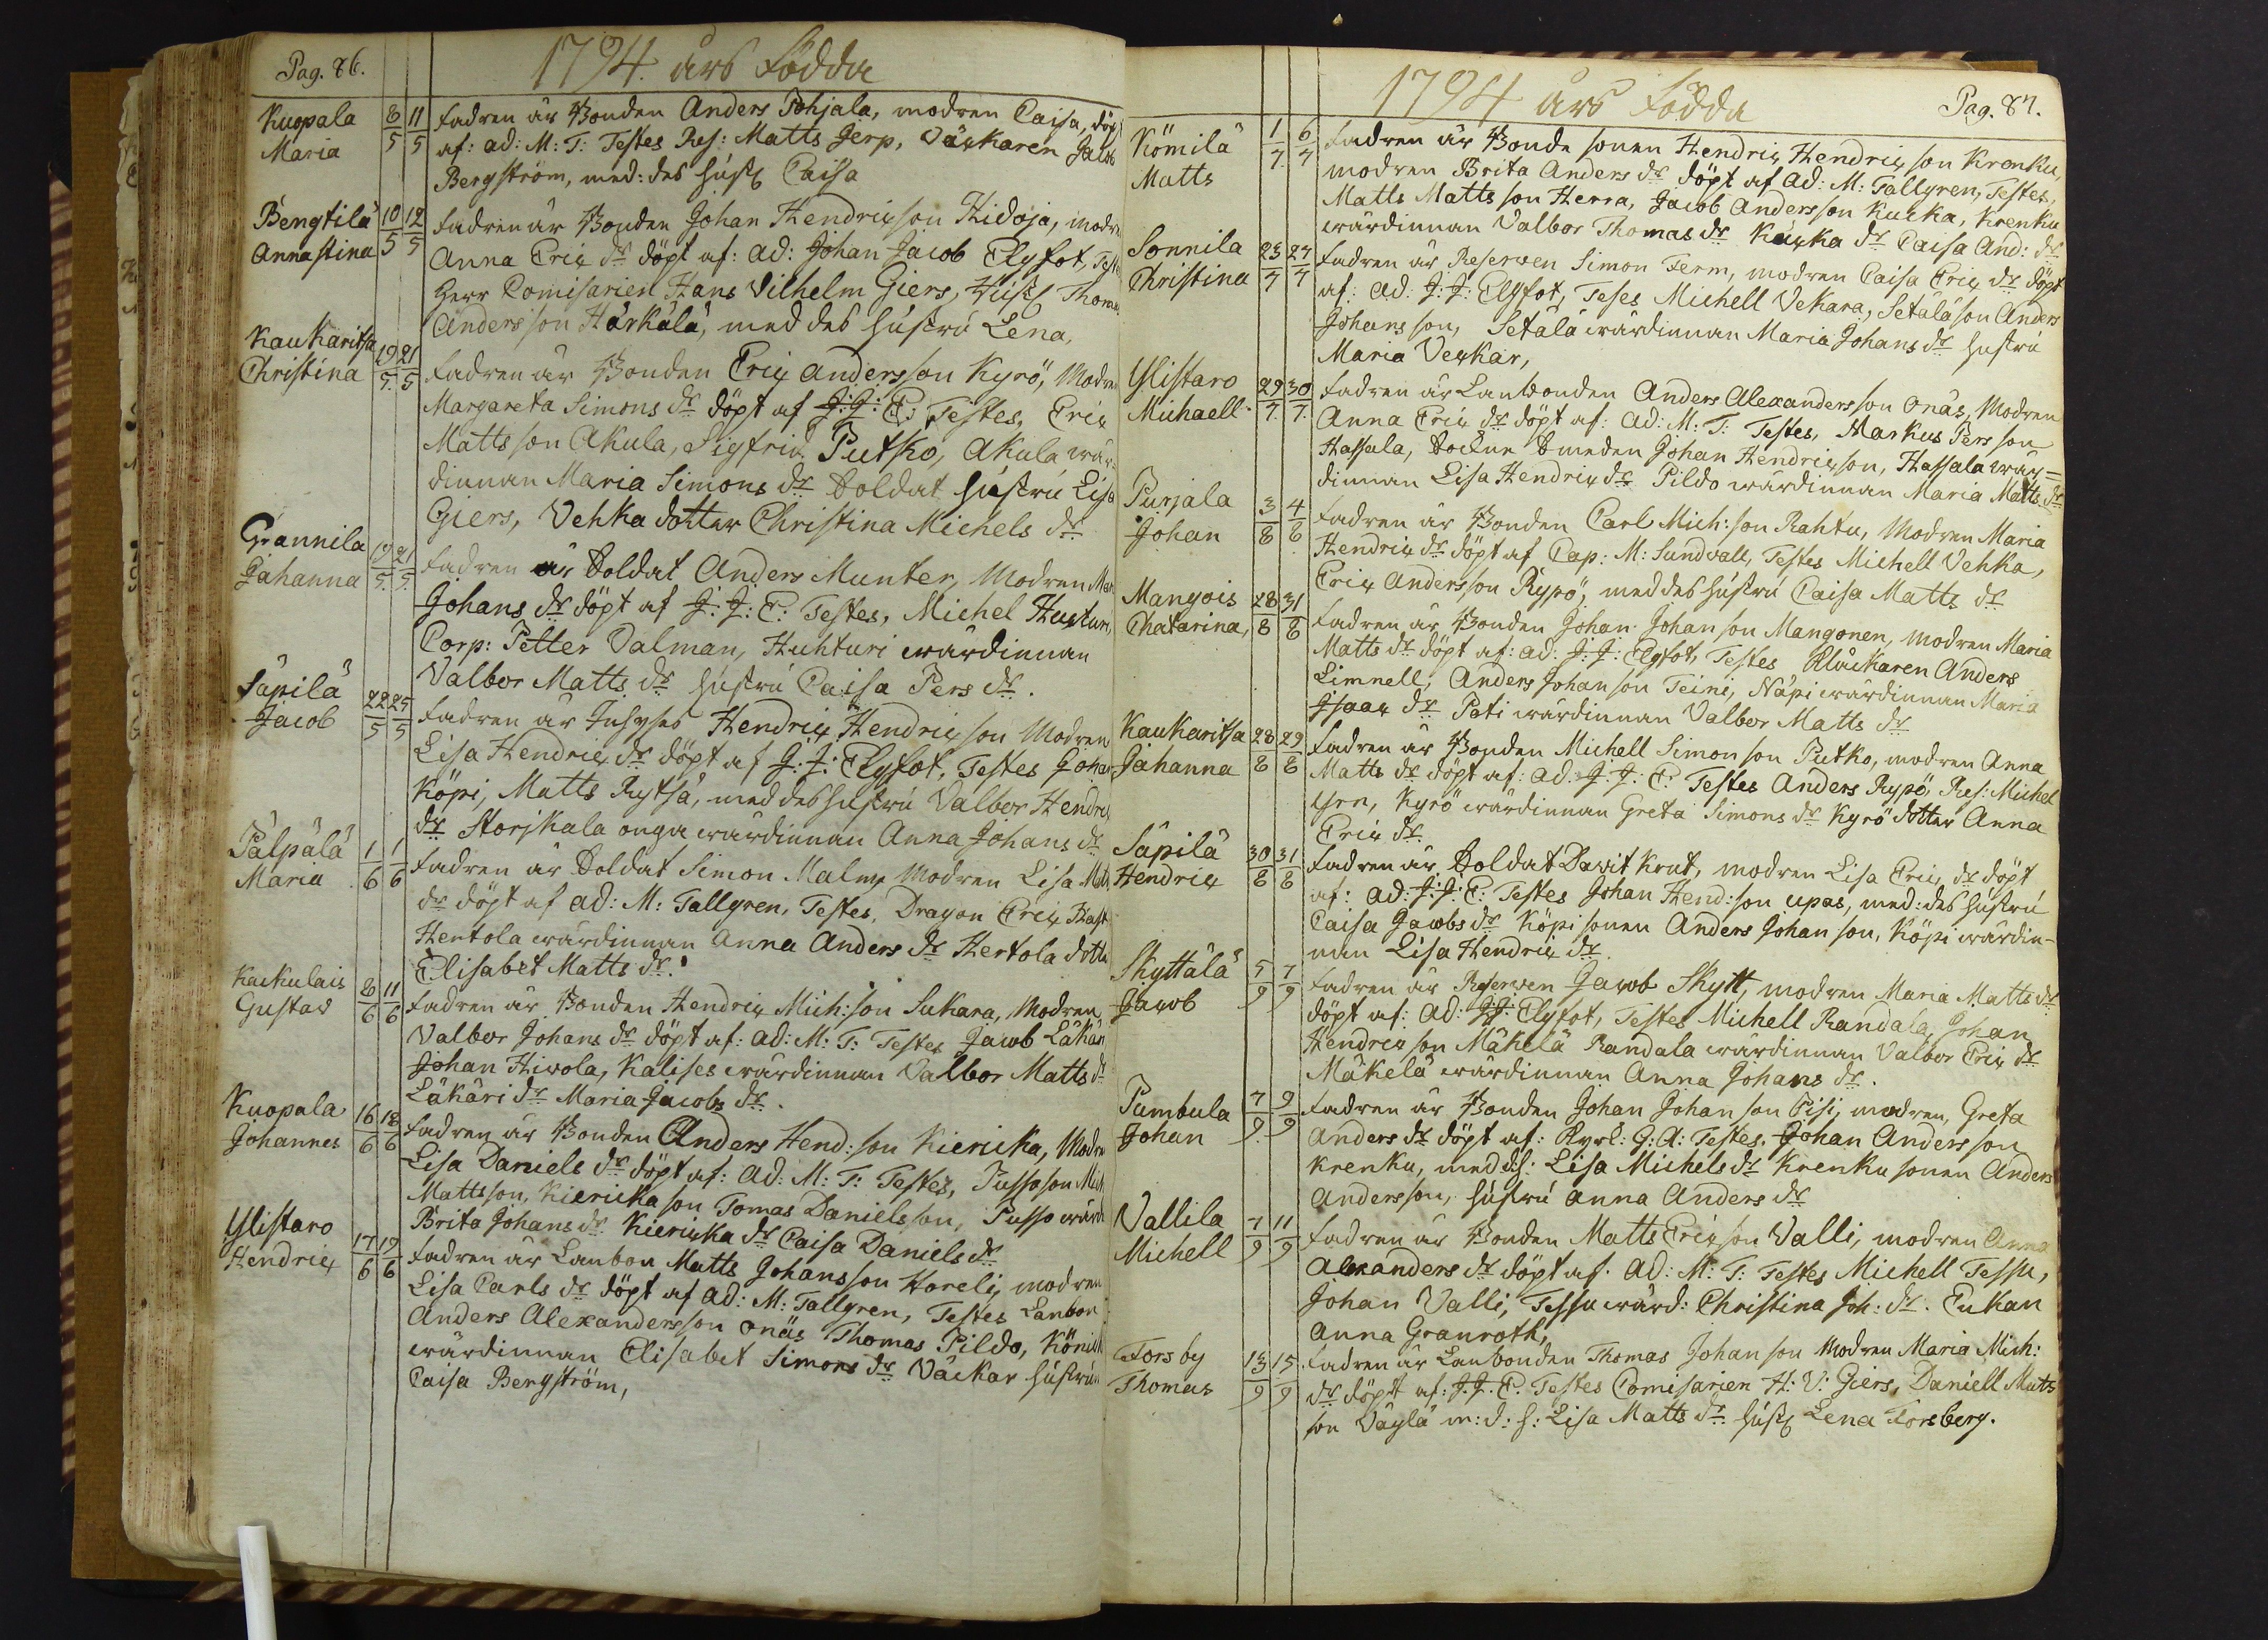 Pag. 86.
1794. års Födda
Kuopala
Maria
8/5 11/5
Fadren är Bonden Anders Pohjala, modren Caisa, döpt
af: ad: M: T: Testes Res: Matts Jerp, Väckaren Jacob
Bergström, med: des hust: Caisa
Bengtilä
Annastina
10/5 12/5
Fadren är Bonden Johan Hendricson Hidoja, modren
Anna Eric dr döpt af: ad: Johan Jacob Elgfot, Testes
Herr Comisarien Hans Vilhelm Giers, Hust: Thomas
Andersson Härkälä, med des hustru Lena,
Kaukaritsa
Christina
19/5 21/5
Fadren är Bonden Eric andersson Kyrö, Modren
Margareta Simons dr döpt af J: J: E: Testes, Eric
Mattsson Akula, Sigfrid Putko, Akula wär-
dinnan Maria Simons dr Soldat hustru Lisa
Giers, Vehka dotter Christina Michels dr
Grannila
Jahanna
19/5 21/5
Fadren är Soldat Anders Munter, Modren Mar
Johans dr döpt af J: J: E: Testes, Michel Huhturi,
Corp: Petter Valman, Huhturi wärdinnan
Valbor Matts dr hustru Caisa Pers dr.
Säpilä
Jacob
22/5 25/5
Fadren är Inhyses Hendric Hendricson Modren
Lisa Hendric dr döpt af J: J: Elgfot, Testes Johan
Köpi, Matts Rytsä, med des hustru Valbor Hendric
dr Storjkala onga wärdinnan Anna Johans dr
Pälpälä
Maria
1/6 1/6
Fadren är Soldat Simon Malm, Modren Lisa Matts
dr döpt af ad: M: Tallgren, Testes, Dragon Eric Hast
Hertola wärdinnan Anna Anders dr Hertola dotter
Elisabet Matts dr.
Kaukulais
Gustav
8/6 11/6
Fadren är Bonden Hendric Mich: son Sukara, Modren
Valbor Johans dr döpt af: ad: M: T: Testes Jacob Läkäri
Johan Hivola, Kalises wärdinnan Valbor Matts dr
Läkäri dr Maria Jacobs dr.
Kuopala
Johannes
16/6 18/6
Fadren är Bonden Anders Hend: son Kiericka, Modren
Lisa Daniels dr döpt af: ad: M: T: Testes, Pusso son Mich
Mattsson, Kiericka son Tomas Danielsson, Pusso wärd
Brita Johans dr Kiericka dr Caisa Daniels dr
Ylistaro
Hendric
17/6 19/6
Fadren är Lanbon Matts Johansson Horeli, modren
Lisa Carls dr döpt af ad: M: Tallgren, Testes Lanbon
Anders Alexandersson onäs Thomas Pildo, Könik
wärdinnan Elisabet Simons dr Väckar hustrun
Caisa Bergström,
1794 års Födda
Pag. 87.
Kömilä
Matts
1/7 6/7
Fadren är Bonde sonen Hendric Hendricson Krenku,
modren Brita Anders dr döpt af ad: M: Tallgren, Testes,
Matts Mattsson Herra, Jacob Andersson Kucka, Krenku
wärdinnan Valbor Thomas dr Kucka dr Caisa And: dr
Sonnila
Christina
23/7 27/7
Fadren är Reserven Simon Ferm, modren Caisa Eric dr döpt
af: ad: J: J: Elgfot, Teses Michell Vekara, Setälä son Anders
Johansson, Setälä wärdinnan Maria Johans dr hustru
Maria Veckar,
Ylistaro
Michaell
29/7 30/7
Fadren är Lanbonden Anders Alexandersson onäs, Modren
Anna Eric dr döpt af: ad: M: T: Testes, Markus Persson
Hassala, Sockne Smeden Johan Hendricson, Hassala wär=
dinnan Lisa Hendric dr Pildo wärdinnan Maria Matts dr
Purjala
Johan
3/8 4/8
Fadren är Bonden Carl Mich: son Rahtu, Modren Maria
Hendric dr döpt af Cap: M: Sundvall, Testes Michell Vehka,
Eric andersson Rypö, med des hustru Caisa Matts dr
Mangois
Chatarina,
28/8 31/8
Fadren är Bonden Johan Johanson Mangonen, modren Maria
Matts dr döpt af: ad: J: J: Elgfot, Testes Klåckaren Anders
Limnell, Anders Johanson Teini, Näpi wärdinnan Maria
Isaac dr Pati wärdinnan Valbor Matts dr
Kaukaritsa
Jahanna
28/8 29/8
Fadren är Bonden Michell Simonson Putko, modren Anna
Matts dr döpt af: ad: J: J: E: Testes Anders Rypö, Res: Michel
Yrn, Kyrö wärdinnan Greta Simons dr Kyrö dotter Anna
Eric dr
Säpilä
Hendric
30/8 31/8
Fadren är Soldat Davit Krut, modren Lisa Eric dr döpt
af: ad: J: J: E: Testes Johan Hend: son upas, med: des hustru
Caisa Jacobs dr Köpi sonen Anders Johanson, Köpi wärdin-
nan Lisa Hendric dr
Skyttälä
Jacob
5/9 7/9
Fadren är Reserven Jacob Skytt, modren Maria Matts dr
döpt af: ad: J: J: Elgfot, Testes Michell Randala, Johan
Hendricson Mäkelä Randala wärdinnan Valbor Eric dr
Mäkelä wärdinnan Anna Johans dr.
Pumbula
Johan
7/9 9/9
Fadren är Bonden Johan Johanson Pisi, modren, Greta
Anders dr döpt af: Kyrl: G: A: Testes. Johan Andersson
Krenku, med ds: Lisa Michels dr Krenku sonen Anders
Andersson, hustru Anna Anders dr
Vallila
Michell
7/9 11/9
Fadren är Bonden Matts Ericson Valli, modren Anna
Alexanders dr döpt af. ad: M: T: Testes Michell Tessu,
Johan Valli, Tessu wärd: Christina Joh: dr. Enkan
Anna Granroth,
Forsby
Thomas
13/9 15/9
Fadren är Lanbonden Thomas Johanson Modren Maria Mich:
dr döpt af: J. J. E. Testes Comisarien H: V: Giers, Daniell Matts
son Väylä m: d: h: Lisa Matts dr hust: Lena Forsberg.